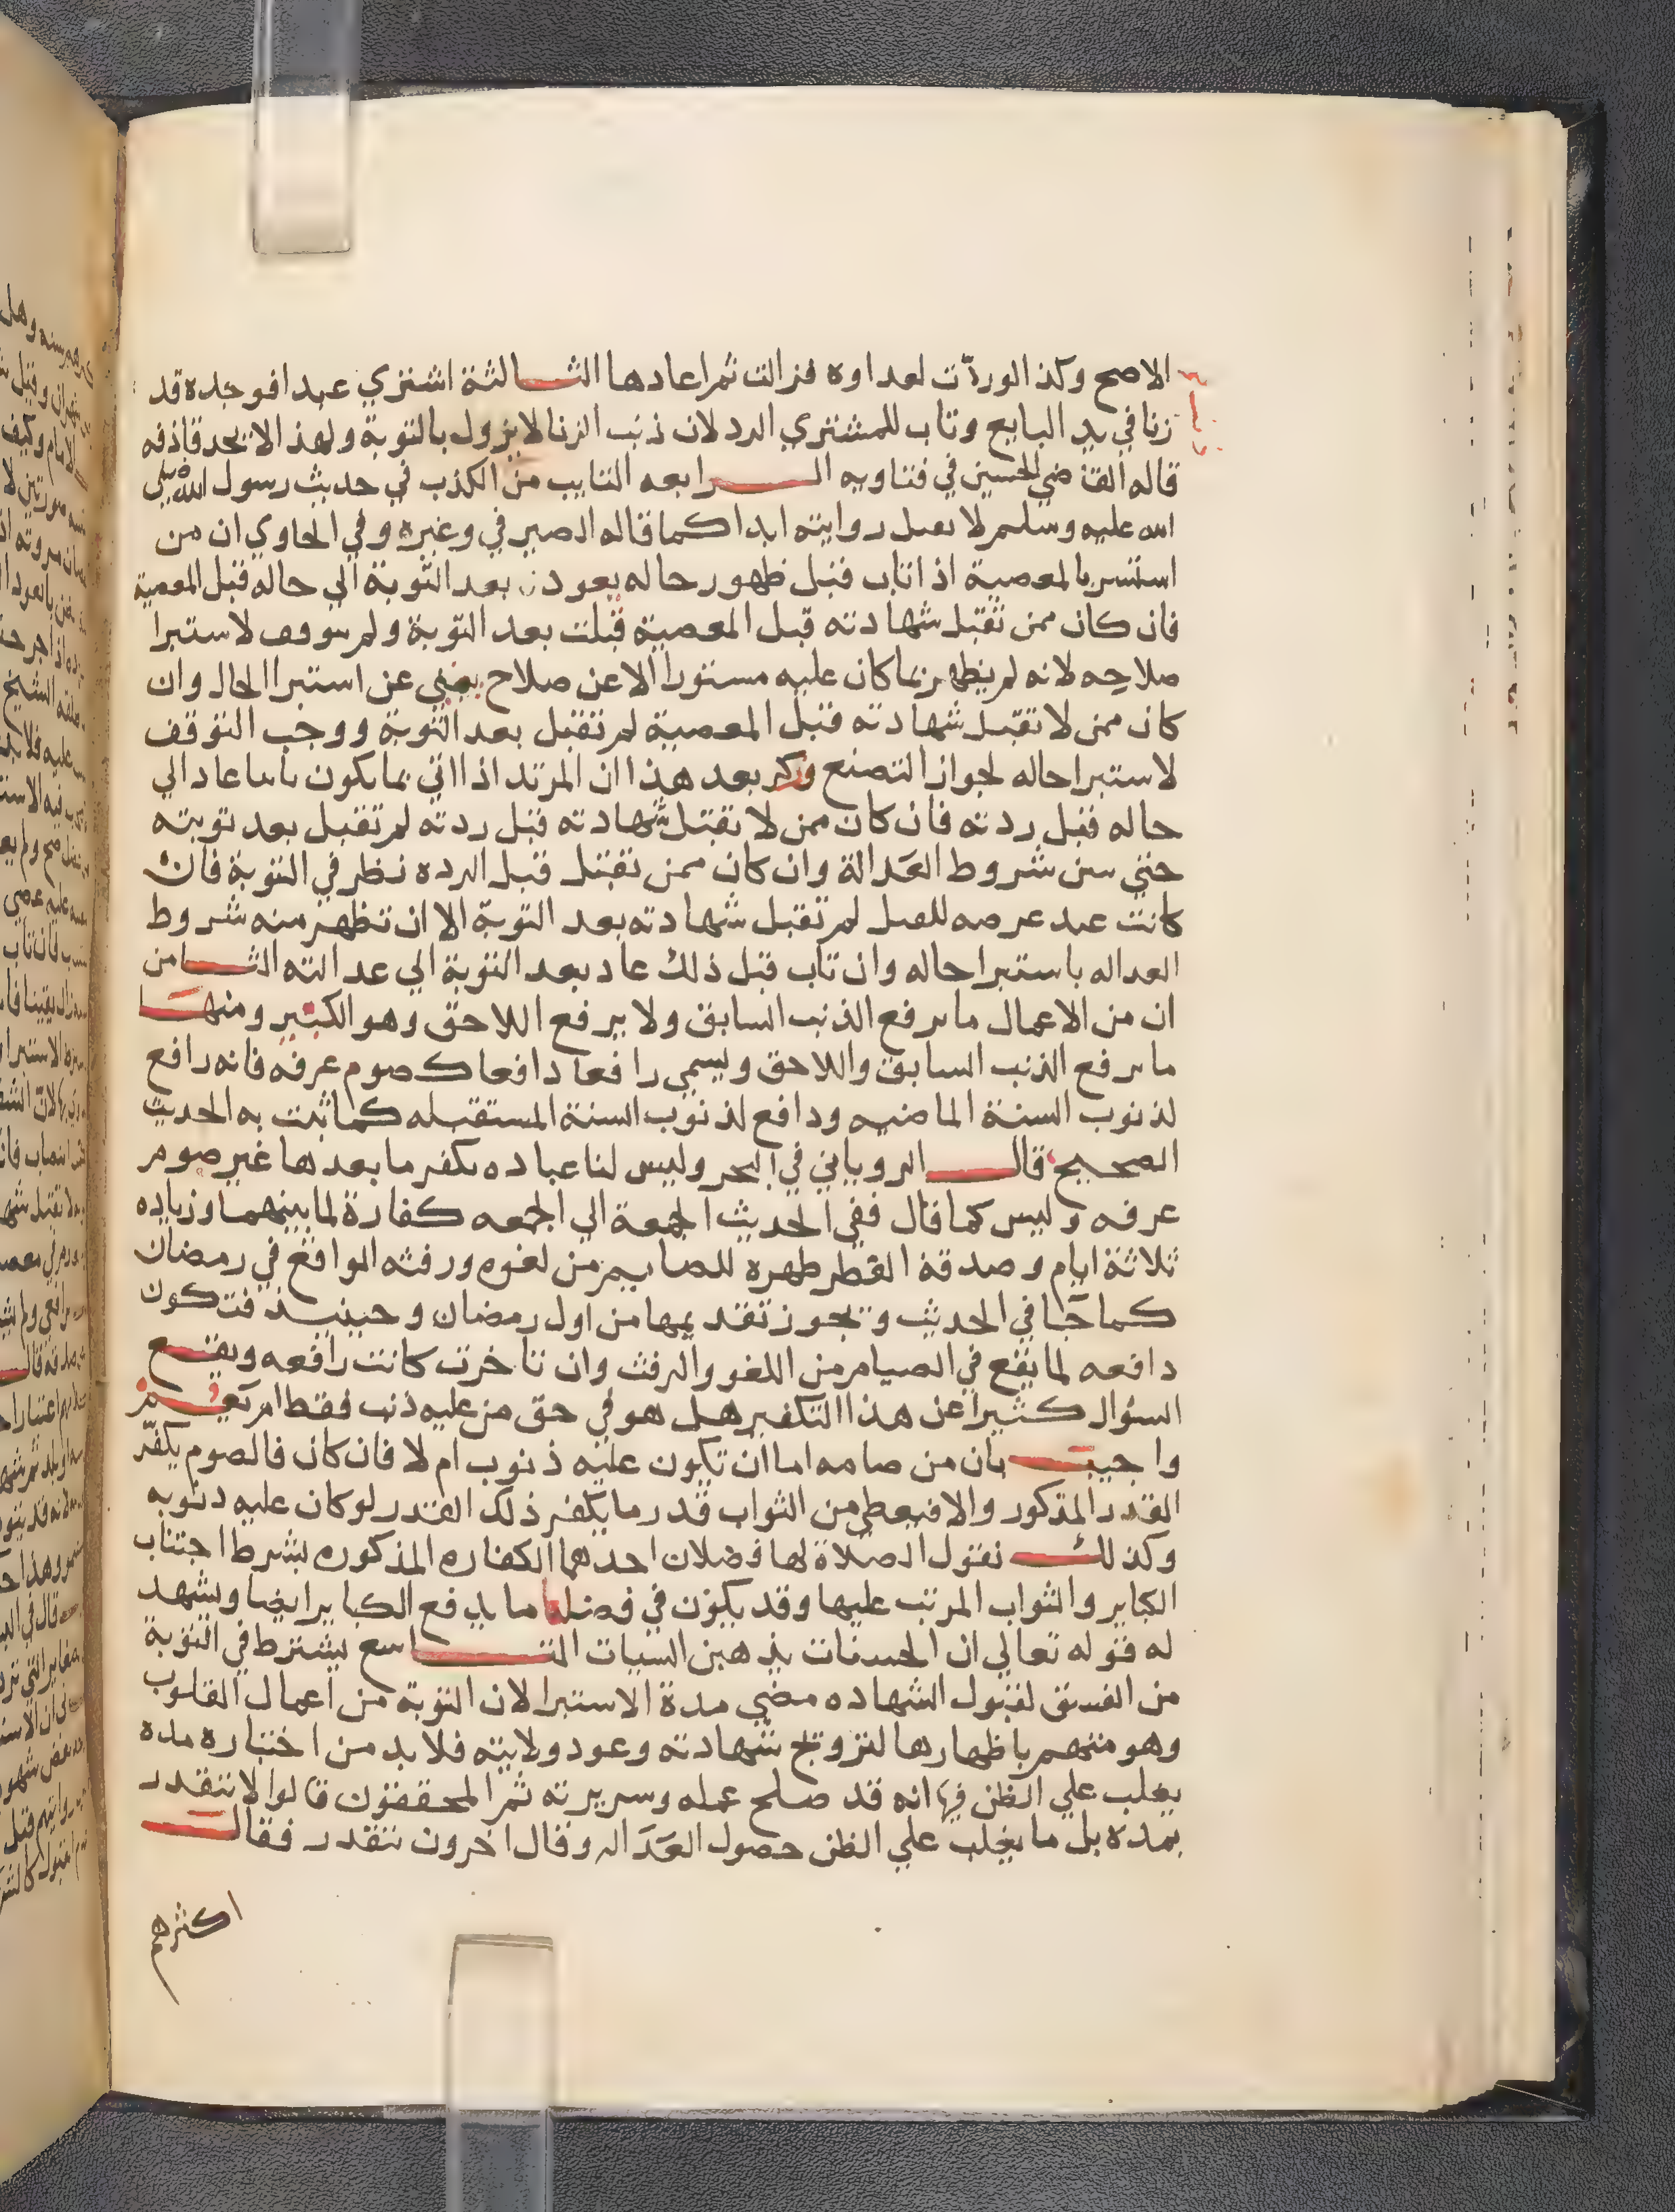 الاصح وكذا لوردّت لعداوه فزالت ثم اعادها الثالثة اشتري عبدا فوجده قد
زنا في يد البايع وتاب للمشتري الرد لان ذنب الزنا لا يزول بالتوبة ولهذا لا يحد قاذفه
قاله القاضي الحسين في فتاويه الرابعه التايب من الكذب في حديث رسول الله صلي
الله عليه وسلم لا تقبل روايته ابدا كما قاله الصيرفي وغيره وفي الحاوي ان من
استسر بالمعصية اذا تاب قبل ظهور حاله يعود بعد التوبة الي حاله قبل المعصية
فان كان ممن تقبل شهادته قبل المعصية قبلت بعد التوبة ولم يتوقف لاستبرا
صلاحه لانه لم يظهر ما كان عليه مستورا الا عن صلاح يغني عن استبرا الحال وان
كان ممن لا تقبل شهادته قبل المعصية لم تقبل بعد التوبة ووجب التوقف
لاستبرا حاله لجواز التصنع وذكر بعد هذا ان المرتد اذا اتي بما يكون تايبا عاد الي
حاله قبل ردته فان كان ممن لا تقبل شهادته قبل ردته لم تقبل بعد توبته
حتي شروط العدالة وان كان ممن تقبل قبل الرده نظر في التوبة فان
كانت عند عرضه للقتل لم تقبل شهادته بعد التوبة الا ان تظهر منه شروط
العداله باستبرا حاله وان تاب قبل ذلك عاد بعد التوبة الي عدالته الثامن
ان من الاعمال ما يرفع الذنب السابق ولا يرفع اللاحق وهو الكثير ومنها
ما يرفع الذنب السابق واللاحق ويسمي رافعا دافعا كصوم عرفه فانه رافع
لذنوب السنة الماضيه ودافع لذنوب السنة المستقبله كما ثبت به الحديث
الصحيح قال الروياني في البحر وليس لنا عباده تكفر ما بعدها غير صوم
عرفه وليس كما قال ففي الحديث الجمعة الي الجمعه كفارة لما بينهما وزياده
ثلاثة ايام وصدقة الفطر طهره للصايم من لغوه ورفثه الواقع في رمضان
كما جا في الحديث وتجوز تقديمها من اول رمضان وحينيذ فتكون
دافعه لما يقع في الصيام من اللغو والرفث وان تاخرت كانت رافعه ويقع
السؤال كثيرا عن هذا التكفير هل هو في حق من عليه ذنب فقط ام يعم
واجيب بان من صامه اما ان تكون عليه ذنوب ام لا فان كان فالصوم يكفّر
القدر المذكور والا فيعطي من الثواب قدر ما يكفر ذلك القدر لو كان عليه ذنوبه
وكذلك نقول الصلاة لها فضلان احدهما الكفاره المذكوره بشرط اجتناب
الكباير والثواب المرتب عليها وقد يكون في فضلها ما يدفع الكباير ايضا ويشهد
له قوله تعالي ان الحسنات يذهبن السيات التاسع يشترط في التوبة
من الفسق لقبول الشهاده مضي مدة الاستبرا لان التوبة من اعمال القلوب
وهو متهم باظهارها لترويج شهادته وعود ولايته فلا بد من اختباره مده
يغلب علي الظن فيها انه قد صلح عمله وسريرته ثم المحققون قالوا لا تتقدر
بمده بل ما يغلب علي الظن حصول العداله وقال اخرون تتقدر فقال
اكثرهم